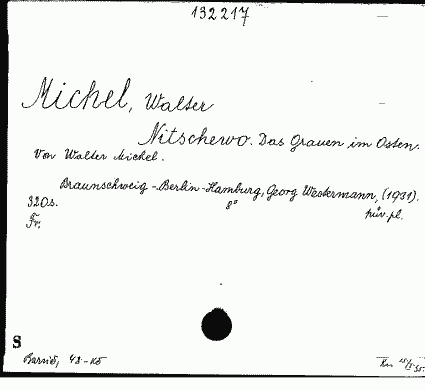 132217
Michel, Walter
Nitschewo. Das Grauen im Osten.
Von Walter Michel.
Braunschweig - Berlin - Hamburg, Georg Westermann, (1931).
320 s. 8° pův. pl.
Fr.
S
48-